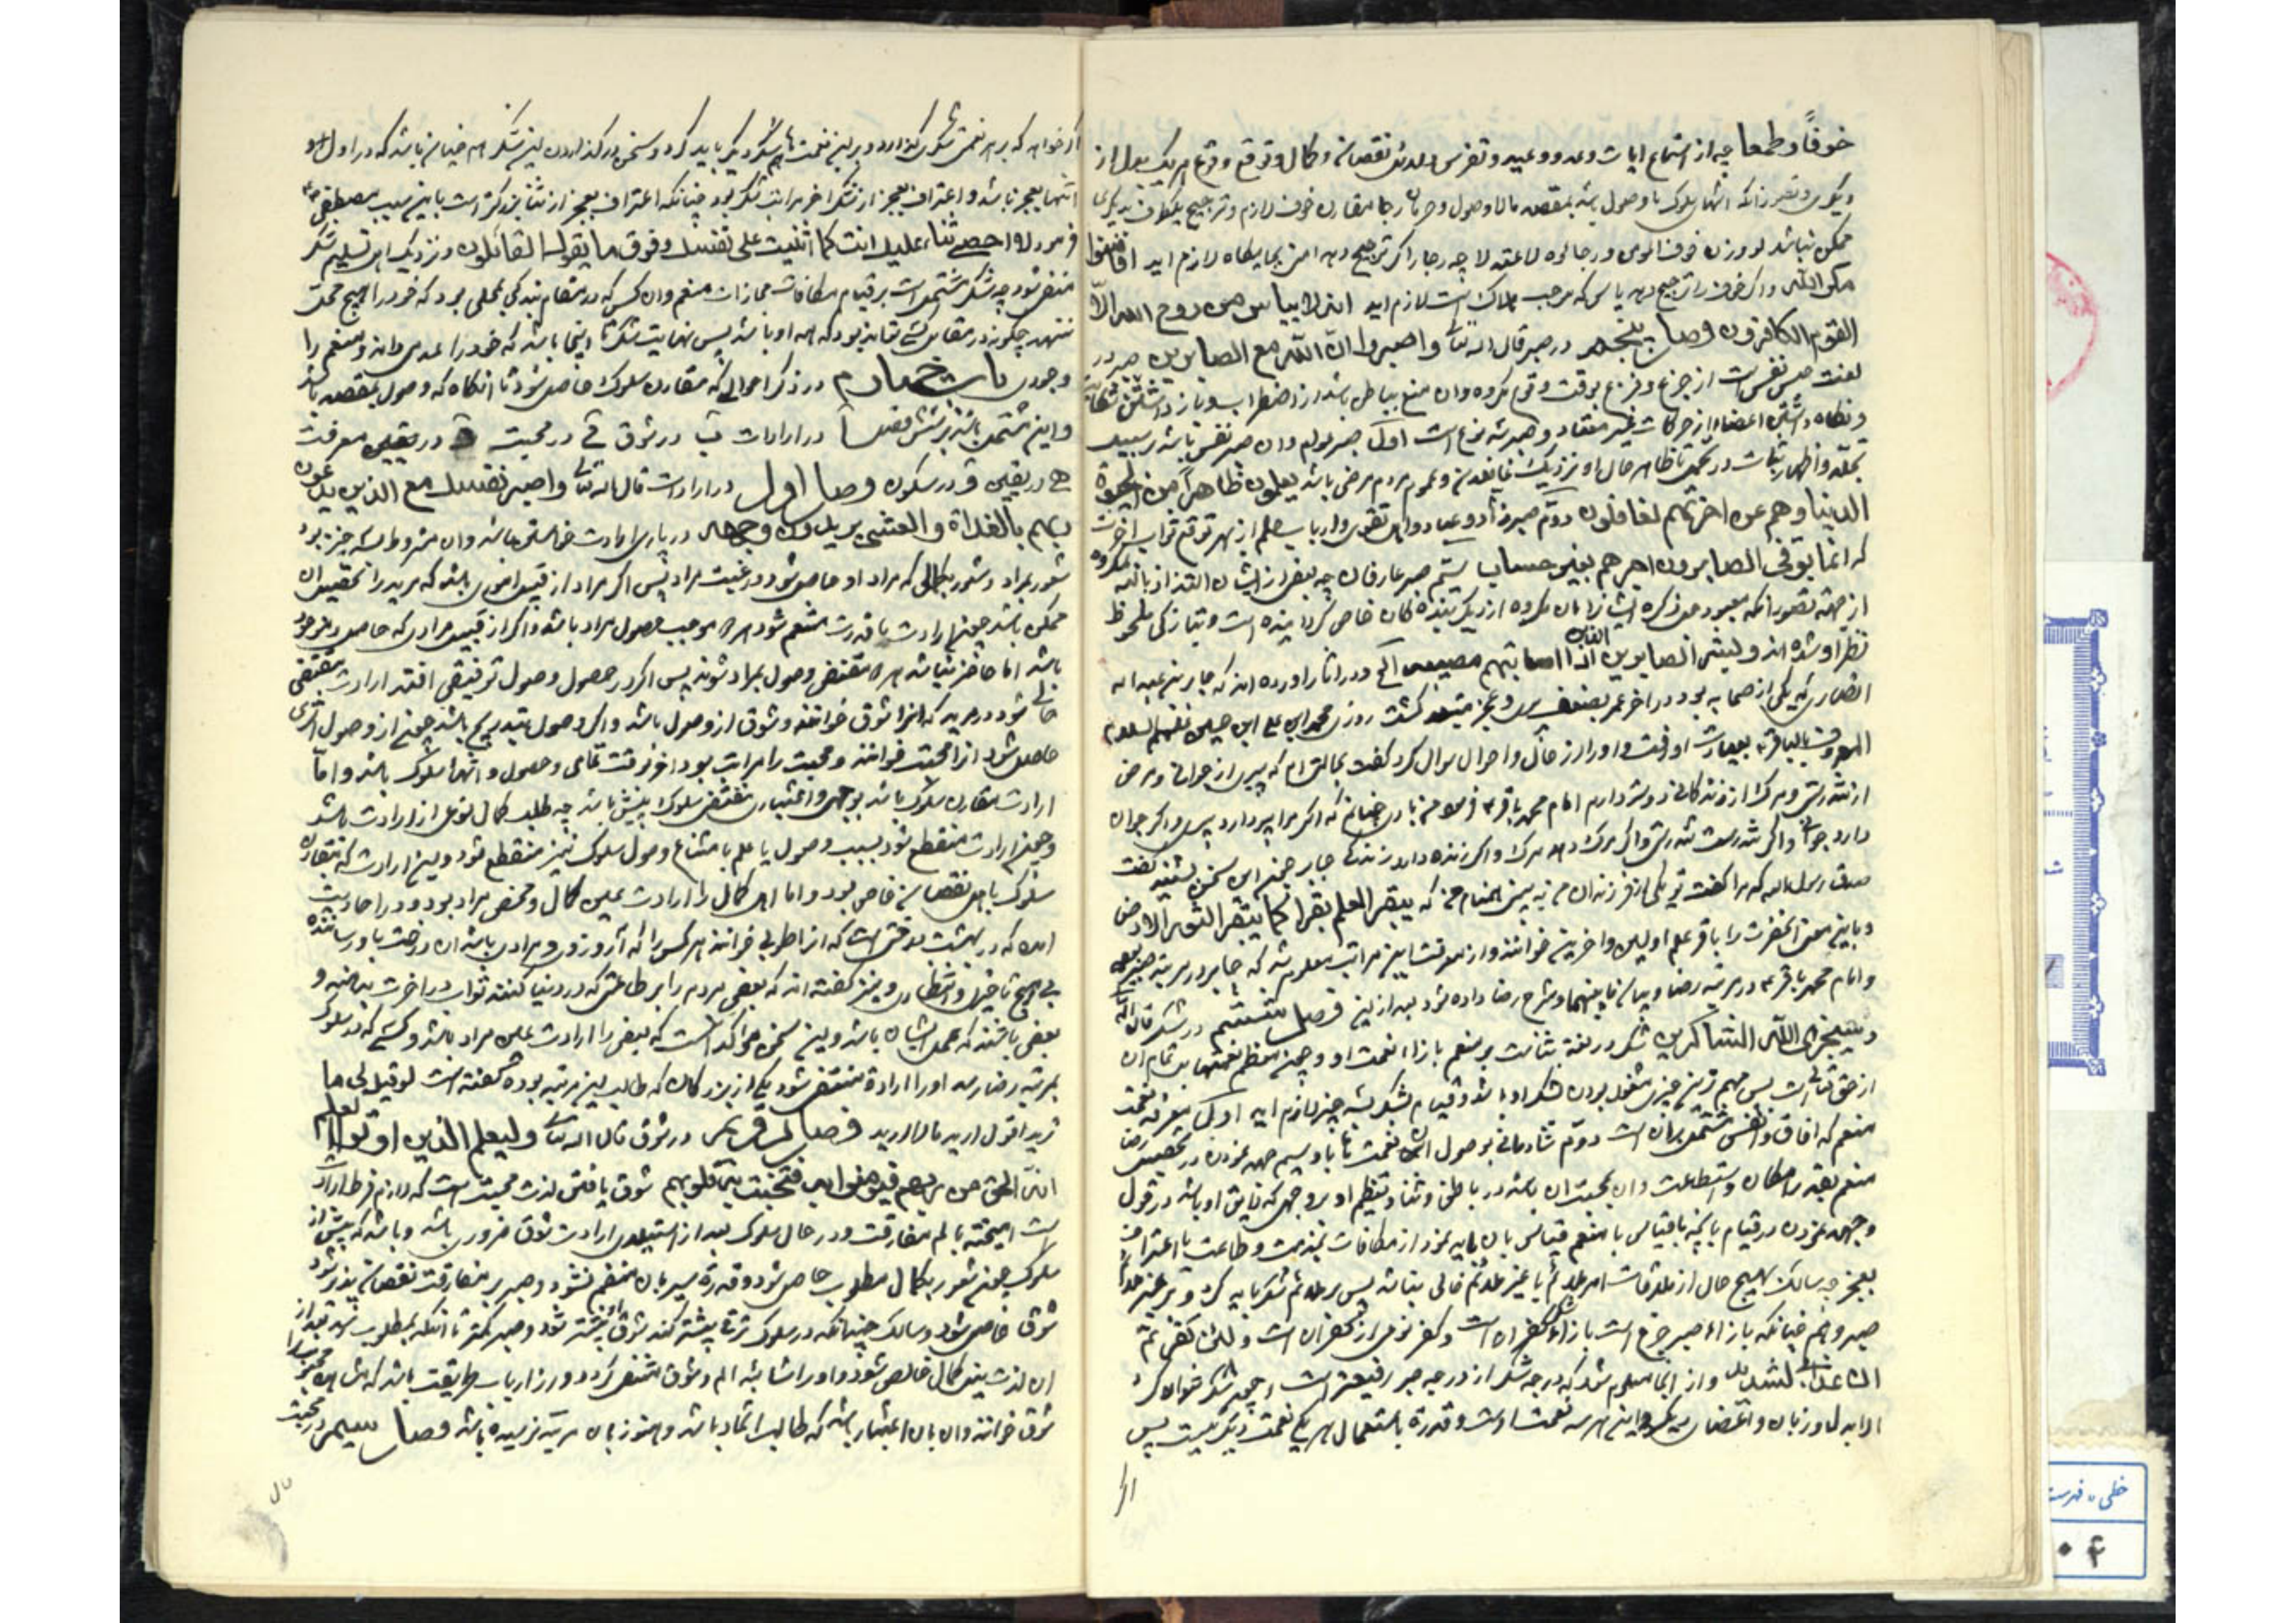 خوفاً و طمعا چه از استماع ایات وعد و وعید و تفرس دلایل نقصان و کمال و توقع وقوع هر یک بدل از
دیگری و تصور آنکه انتهای سلوک با وصول باشد بمقصد یا لا وصول و حرمان رجا مقارن خوف لازم و ترجیح یکطرف بر دیگری
ممکن نباشد لو وزن خوف المؤمن و رجاؤه لاعتدلا چه رجا را اگر ترجیح دهد امن بجایگاه لازم اید افامنوا
مکر الله و اگر خوف را ترجیح دهد یاس که موجب هلاک است لازم اید انه لا ییاس من روح الله الا
القوم الکافرون فصل پنجم در صبر قال الله تعالی واصبروا ان الله مع الصابرین صبر در
لغت حبس نفس است از جزع و فزع بوقت وقوع مکروه و ان منع باطن باشد از اضطراب و باز داشتن زبان از شکایت
و نگاه داشتن اعضا از حرکات غیر معتاد و صبر سه نوع است اول صبر عوام و ان صبر نفس باشد بر سبیل
تجلد و اظهار ثبات در تحمل تا ظاهر حال او نزدیک عاقلان و عموم مردم مرضی باشد یعلمون ظاهرا من الحیوة
الدنیا وهم عن اخرتهم لغافلون دوم صبر زهاد و عباد و اهل تقوی و ارباب حلم از بهر توقع ثواب اخرت
که انما یوفی الصابرون اجرهم بغیر حساب سیم صبر عارفان چه بعضی از ایشان التذاذ یابند بمکروه
از جهت تصور انکه معبود جل ذکره ایشانرا بان مکروه از دیگر بندگان خاص گردانیده است و بتازگی ملحوظ
نظر او شده اند و بشر الصابرین الذین اذا اصابتهم مصیبة الخ و در اثار اورده اند که جابر بن عبد الله
انصاری که یکی از صحابه بود در اخر عمر بضعف پیری و عجز مبتلا گشت روزی محمد ابن علی ابن حسین علیهم السلام
المعروف بالباقر بعیادت او رفت و او را از حال و احوال سوال کرد گفت بحالتی ام که پیری از جوانی و مرض
از تندرستی و مرگ از زندگانی دوستر دارم امام محمد باقر فرمود من باری چنانم که اگر مرا پیر دارد پیری و اگر جوان
دارد جوانی و اگر تندرست تندرستی و اگر مرگ دهد مرگ و اگر زنده دارد زندگی جابر چون این سخن بشنید گفت
صدق رسول الله که مرا گفت تو یکی از فرزندان من به بینی همنام من که یبقر العلم بقرا کما یبقر الثور الارض
و باین معنی انحضرت را باقر علم اولین و اخرین خوانند و از معرفت این مراتب معلوم شد که جابر در مرتبه صبر بود
و امام محمد باقر در مرتبه رضا و بیان ما بینهما و شرح رضا داده شود بعد از این فصل ششم در شکر قال الله
و سیجزی الله الشاکرین شکر در لغت ثناست بر منعم بازاء نعمت او و چون معظم نعمتها بل تمام ان
از حق تعالی است پس مهم ترین چیزی مشغول بودن بشکر او باشد و قیام بشکر بسه چیز لازم اید اول معرفت نعمت
منعم که افاق و انفس مشتمل بر ان است دوم شادمانی بوصول ان نعمت ها باو سیم جهد نمودن در تحصیل رضای
منعم بقدر امکان و استطاعت و ان بمحبت ان باشد در باطن و ثنا و تعظیم او بر وجهی که لایق او باشد در قول
و جهد نمودن در قیام بانچه بقیاس با منعم قیاس بان باید نمود از مکافات بخدمت و طاعت یا اعتراف
بعجز چه سالک بهیچ حال از ملاقات امر ملائم یا غیر ملائم خالی نباشد پس بر ملائم شکر باید کرد و بر غیر ملائم
صبر و هم چنانکه بازاء صبر جزع است بازاء شکر کفران است و کفر نوعی از کفران است و لئن کفرتم
ان عذابی لشدید و از اینجا معلوم شد که درجه شکر از درجه صبر رفیعتر است و چون شکر نتوان کرد
الا بدل و زبان و اعضای دیگر و این هر سه نعمت اوست و قدرة باستعمال هر یکی نعمت دیگریست پس
اگر خواهد که بر هر نعمتی شکری گذارد و بر این نعمت ها هم شکر دیگر باید کرد و سخن در گذاردن این شکر هم چنان باشد که در اول و
انتها بعجز باشد و اعتراف بعجز از شکر اخر مراتب شکر بود چنانکه اعتراف بعجز از ثنا بزرگتر است باین سبب مصطفی ص
فرمود لا احصی ثناء علیک انت کما اثنیت علی نفسک و فوق ما یقول القائلون و نزدیک اهل تسلیم شکر
منتفی شود چه شکر مشتمل است بر قیام بمکافات مجازات منعم و ان کس که در مقام بندگی بمحلی بود که خود را هیچ محل
ننهد چگونه در مقابل کسی تواند بود که همه او باشد پس نهایت شکر تا اینجا باشد که خود را عدمی داند و منعم را
وجودی باب چهارم در ذکر احوالی که مقارن سلوک حاصل شود تا انگاه که وصول بمقصد باشد
و این مشتمل باشد بر شش فصل ا در ارادت ب در شوق ج در محبت د در معرفت
ه در یقین و در سکون فصل اول در ارادت قال الله تعالی واصبر نفسک مع الذین یدعون
ربهم بالغداة والعشی یریدون وجهه در پارسی ارادت خواستن باشد و ان مشروط بسه چیز بود
شعور بمراد و شعور بکمالی که مراد او حاصل شود و غیبت مراد پس اگر مراد از قبیل اموری باشد که مرید را تحصیل ان
ممکن باشد چون ارادت با قدرت منضم شود هر دو موجب حصول مراد باشد و اگر از قبیل مرادی که حاصل و موجود
باشد اما حاضر نباشد هر دو مقتضی وصول بمراد شوند پس اگر در حصول وصول توقفی افتد ارادت مقتضی
حالی شود در مرید که انرا شوق خوانند و شوق از وصول باشد و اگر وصول بتدریج باشد چون از وصول اثری
حاصل شود انرا محبت خوانند و محبت را مراتب بود اخر وقت تمامی وصول و انتهاء سلوک باشد و اما
ارادت مقارن سلوک باشد بوجهی و اعتباری مقتضی سلوک پیش باشد چه طلب کمال نوعی از ارادت باشد
و چون ارادت منقطع شود بسبب وصول یا علم بامتناع وصول سلوک نیز منقطع شود و این ارادت که مقارن
سلوک باهل نقصان خاص بود و اما اهل کمال را ارادت عین کمال و محض مراد بود و در احادیث
امده که در بهشت درختی است که انرا طوبی خوانند هر کس را که آرزوی و مرادی باشد ان درخت باو رسانند
بی هیچ تاخیر و انتظاری و نیز گفته اند که بعضی مردم را بر طاعتی که در دنیا کنند ثواب در اخرت بدهند و
بعضی یافتند که عمل ایشان باشد و این سخن مؤکد است که بعضی را ارادت عین مراد باشد و کسی که در سلوک
بمرتبه رضا رسد او را اراده منتفی شود یکی از بزرگان که طالب این مرتبه بوده گفته است لو قیل لی ما
ترید اقول ارید ما لا ارید فصل دوم در شوق قال الله تعالی ولیعلم الذین اوتوا العلم
انه الحق من ربهم فیؤمنوا به فتخبت له قلوبهم شوق یافتن لذت محبت است که لازم فرط ارادت
است امیخته بالم مفارقت و در حال سلوک بعد از استیلای ارادت شوق ضروری باشد و باشد که پیش از
سلوک چون شعور بکمال مطلوب حاصل شود و قدرة سیر بان منضم نشود و صبر بر مفارقت نقصان پذیر شود
شوق حاصل شود و سالک چندانکه در سلوک ترقی بیشتر کند شوق او بیشتر شود و صبر کمتر تا انکه بمطلوب رسد بعد از
ان لذت نیل کمال خالص شود و او را شایبه الم و شوق منتفی گردد و ارباب طریقت باشد که مشاهده محبوب را
شوق خوانند و ان بان اعتبار باشد که طالب اتحاد باشد و هنوز بان مرتبه نرسیده باشد فصل سیم در محبت